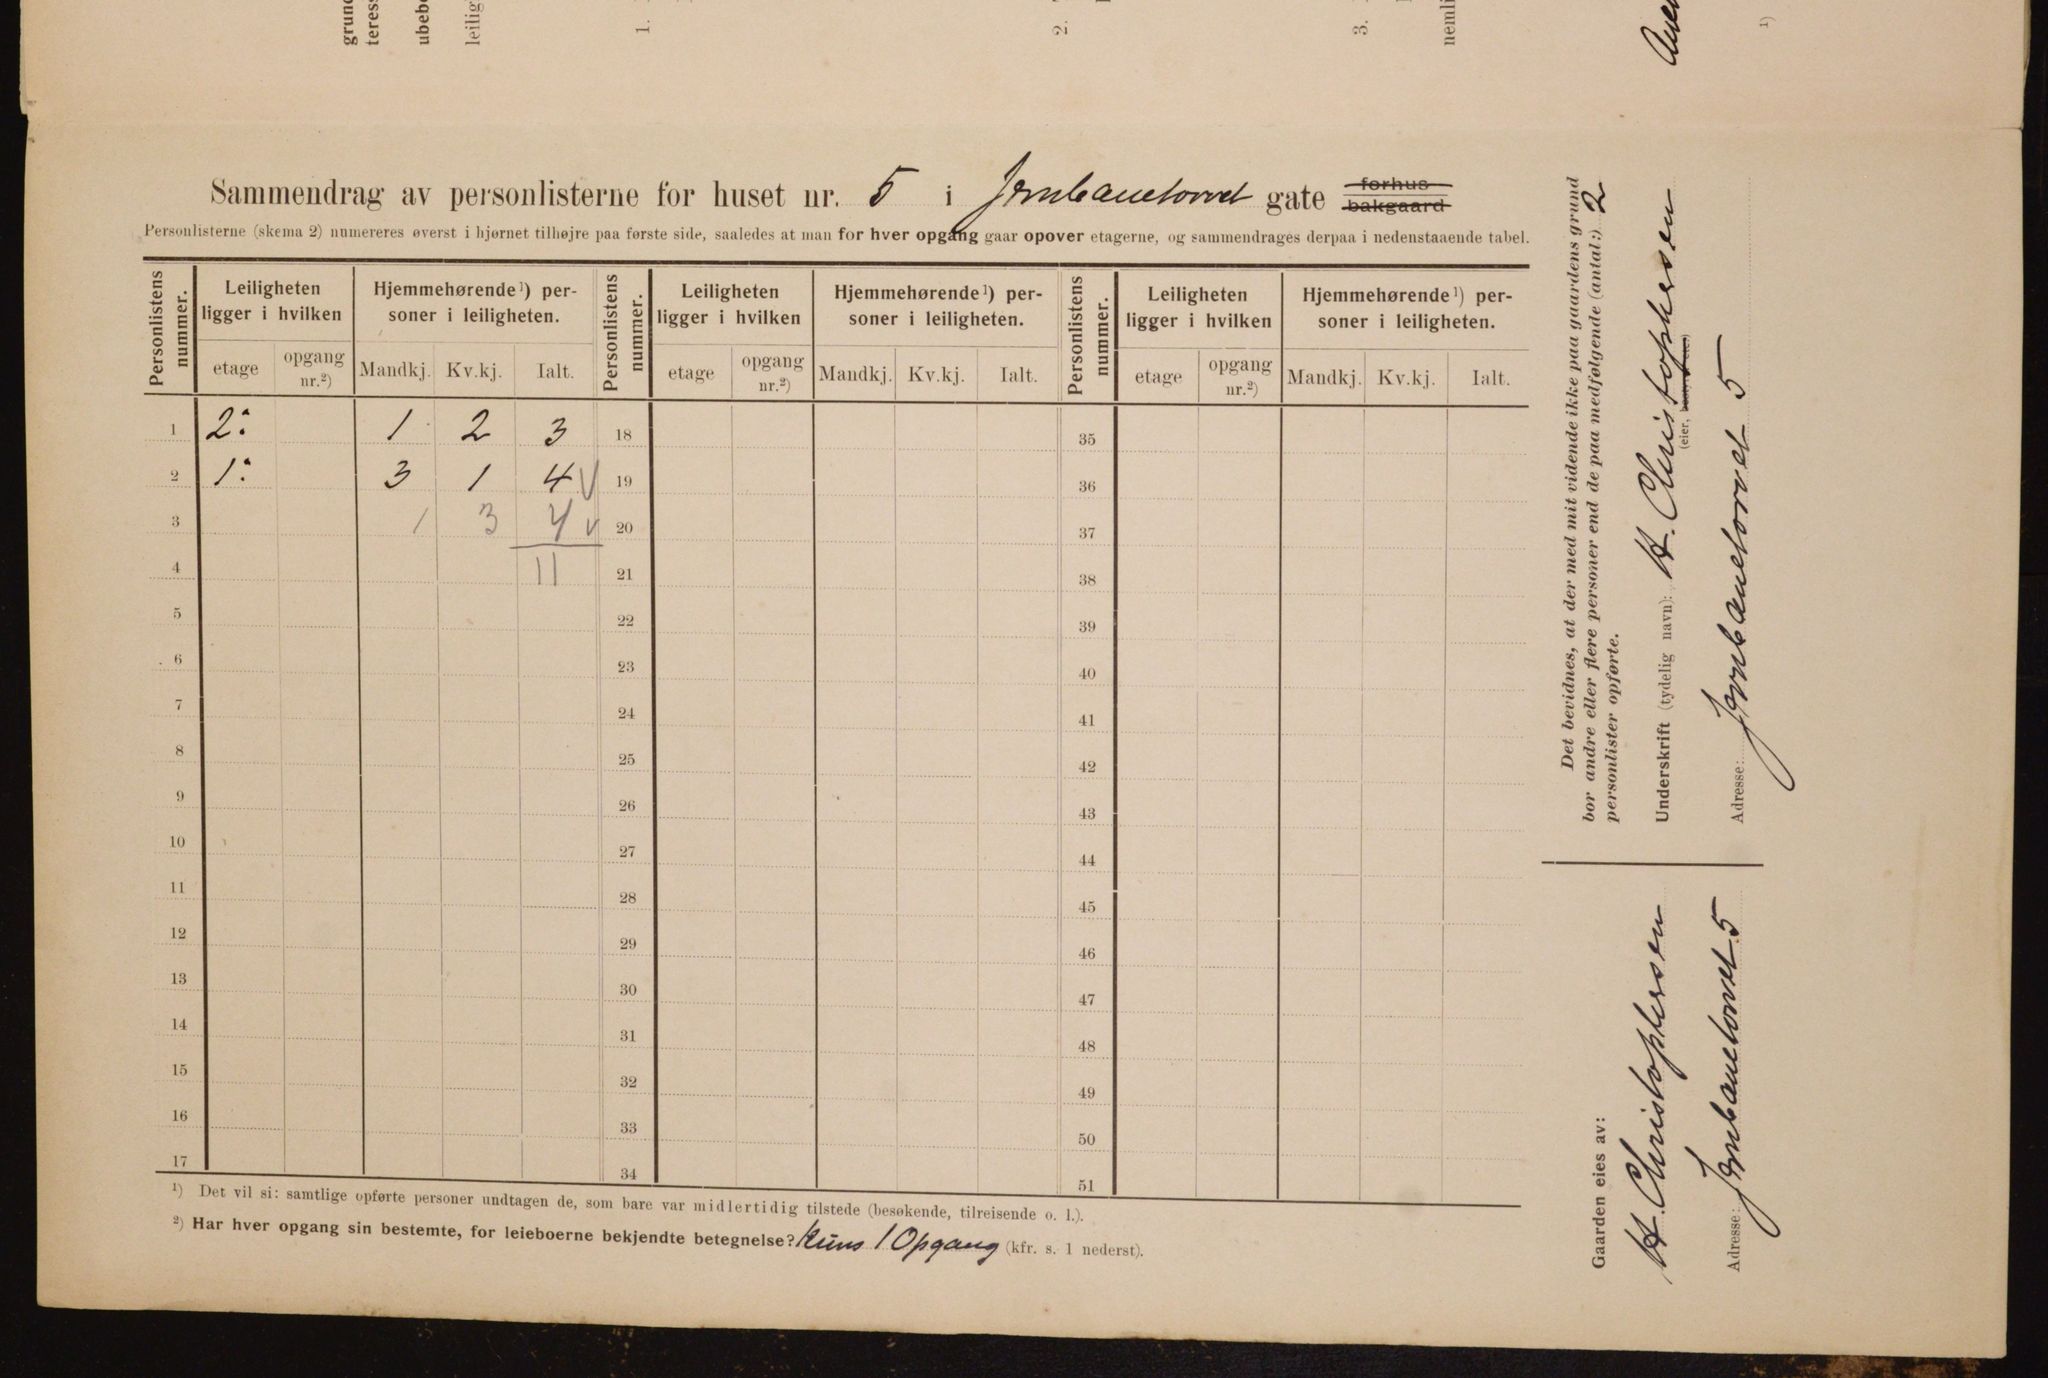 grund
teress
ubebo
leilig
1.
2.
3.
nemli
1)
Sammendrag av personlisterne for huset nr. 5 i Jernbanetorvet gate forhus bakgaard
Personlisterne (skema 2) numereres øverst i hjørnet tilhøjre paa første side, saaledes at man for hver opgang gaar opover etagerne, og sammendrages derpaa i nedenstaaende tabel.
Personlistens nummer. Leiligheten ligger i hvilken Hjemmehørende 1) personer i leiligheten. Personlistens nummer. Leiligheten ligger i hvilken Hjemmehørende 1) personer i leiligheten. Personlistens nummer. Leiligheten ligger i hvilken Hjemmehørende 1) personer i leiligheten.
etage opgang nr.2) Mandkj. Kv.kj. Ialt. etage opgang nr.2) Mandkj. Kv.kj. Ialt. etage opgang nr.2) Mandkj. Kv.kj. Ialt.
1 2: 1 2 3 18 35
2 1: 3 1 4 V 19 36
3 1 3 4 v 20 37
4 11 21 38
5 22 39
6 23 40
7 24 41
8 25 42
9 26 43
10 27 44
11 28 45
12 29 46
13 30 47
14 31 48
15 32 49
16 33 50
17 34 51
1) Det vil si: samtlige opførte personer undtagen de, som bare var midlertidig tilstede (besøkende, tilreisende o. l.).
2) Har hver opgang sin bestemte, for leieboerne bekjendte betegnelse? Kuns 1 Opgang (kfr. s. 1 nederst).
Det bevidnes, at der med mit vidende ikke paa gaardens grund
bor andre eller flere personer end de paa medfølgende (antal:) 2
personlister opførte.
Underskrift (tydelig navn): H. Christophersen
(eier,
Adresse: Jernbanetorvet 5
Gaarden eies av:
H. Christophersen
Adresse: Jernbanetorvet 5